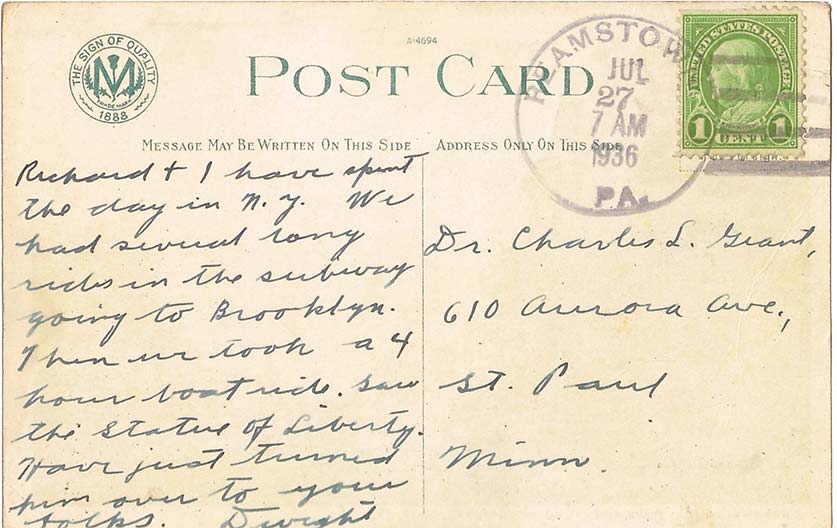 THE SIGN OF QUALITY
TRADE MARK
1888
A-4694
POST CARD
MESSAGE MAY BE WRITTEN ON THIS SIDE
ADDRESS ONLY ON THIS SIDE
REAMSTOWN
JUL
27
7 AM
1936
PA.
UNITED STATES POSTAGE
1 CENT 1
Richard + I have spent
the day in N.Y. We
had several long
rides in the subway
going to Brooklyn.
Then we took a 4
hour boat ride. Saw
the Statue of Liberty.
Have just turned
him over to your
folks. Dwight
Dr. Charles L. Grant,
610 Aurora Ave.,
St. Paul
Minn.